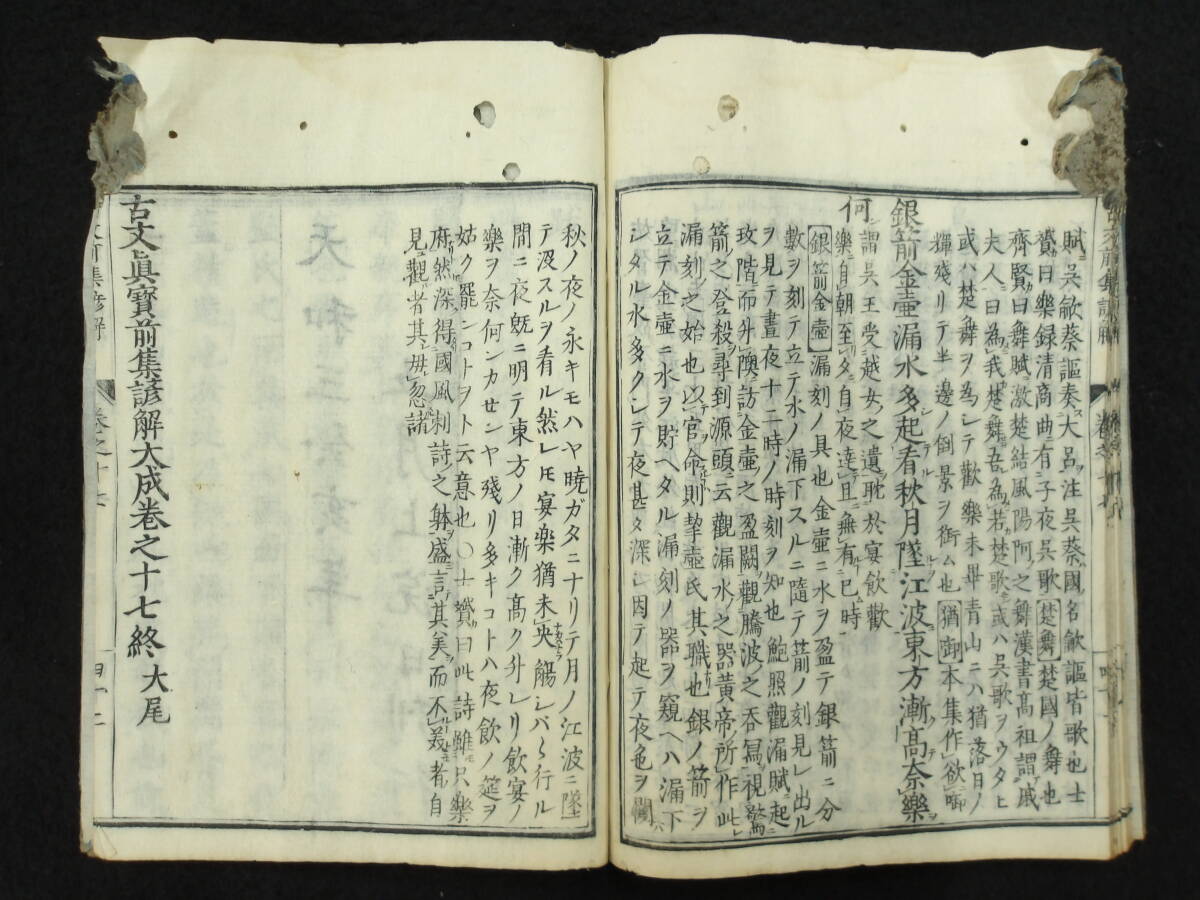 賦ニ吳歈蔡謳奏ス大呂注吳蔡ハ國ノ名歈謳皆歌也士
贇曰樂録清商曲ニ有子夜吳歌楚舞楚國ノ舞也
齊賢曰舞賦ニ激楚結風陽阿之舞漢書高祖謂戚
夫人曰為我楚舞吾為若楚歌或ハ吳歌ヲウタヒ
或ハ楚舞ヲ為シテ歡樂未畢青山ニハ猶落日ノ
輝殘リテ半邊ノ倒景ヲ銜ム也猶銜本集作欲銜
銀箭金壺漏水多起看秋月墜江波東方漸高奈樂
何
謂吳王受越女之遺耽於宴飲歡
樂自朝至夕自夜達旦無有已時
銀箭金壺漏刻ノ具也金壺ニ水ヲ盈テ銀箭ニ分
數ヲ刻テ立テ水ノ漏下スルニ隨テ箭ノ刻見レ出ル
ヲ見テ晝夜十二時ノ時刻ヲ知也鮑照觀漏賦ニ起
攻階而升隩訪金壺之盈闕觀騰波之吞寫視驚
箭之登殺尋到源頭云觀漏水之器黃帝所作此レ
漏刻之始也以官命則挈壺氏其職也銀ノ箭ヲ
立テ金壺ニ水ヲ貯ヘタル漏刻ノ器ヲ窺ヘハ漏下
シタル水多クシテ夜甚タ深シ因テ起テ夜色ヲ
秋ノ夜ノ永キモハヤ曉ガタニナリテ月ノ江波ニ墜
テ沒スルヲ看ル然レモ宴樂猶未央觴シバ〱行ル
間ニ夜既ニ明テ東方ノ日漸ク高ク升レリ飲宴ノ
樂ヲ奈何ンカセンヤ殘リ多キコトハ夜飲ノ筵ヲ
姑ク罷ンコトヲト云意也〇士贇曰此詩雖只樂
府然深得國風刺詩之躰盛言其美而不美者自
見觀者其毋忽諸
古文眞寶前集諺解大成卷之十七終 大尾
卷之十七
四十二